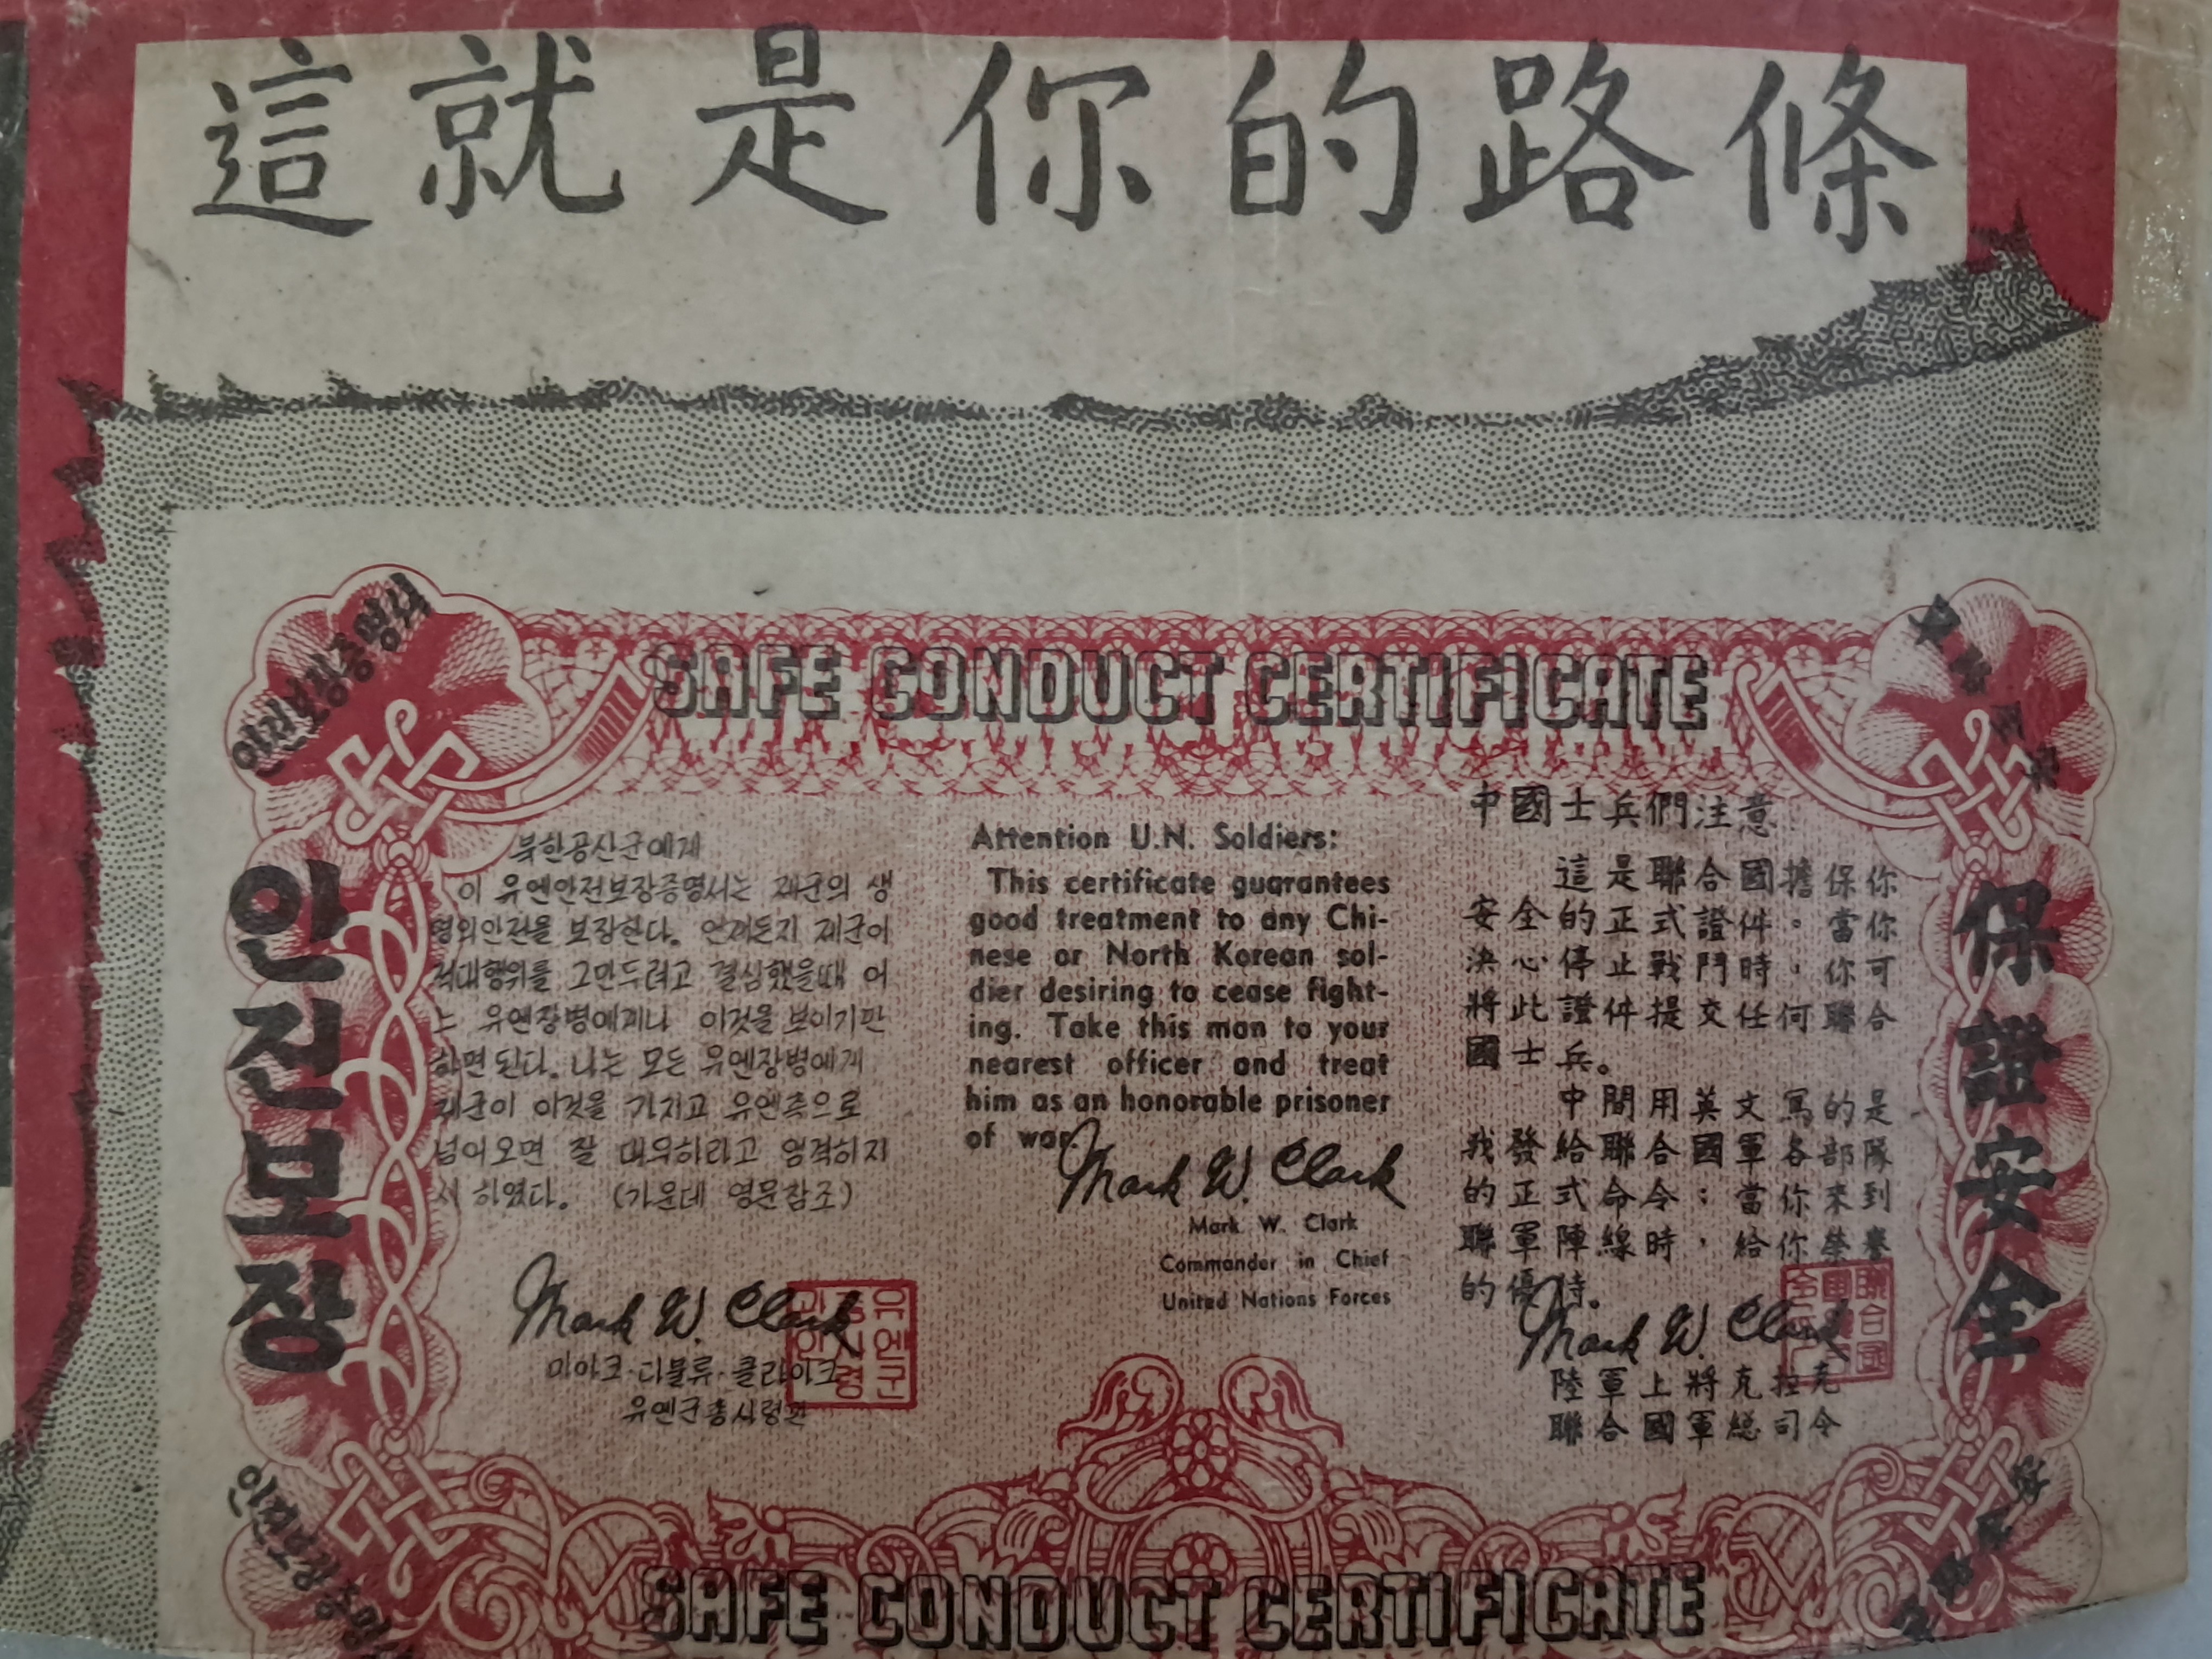 這就是你的路條
SAFE CONDUCT CERTIFICATE
안전보장증명서
안전보장
북한공산군에게
이 유엔안전보장증명서는 제군의 생
명의안전을 보장한다. 언제든지 제군이
적대행위를 그만두려고 결심했을때 어
느 유엔장병에게나 이것을 보이기만
하면 된다. 나는 모든 유엔장병에게
제군이 이것을 가지고 유엔측으로
넘어오면 잘 대우하라고 엄격하지
시 하였다. (가운데 영문참조)
Mark W. Clark
마아크·더블류·클라아크
유엔군총사령관
Attention U.N. Soldiers:
This certificate guarantees
good treatment to any Chi-
nese or North Korean sol-
dier desiring to cease fight-
ing. Take this man to your
nearest officer and treat
him as an honorable prisoner
of war.
Mark W. Clark
Mark W. Clark
Commander in Chief
United Nations Forces
中國士兵們注意
這是聯合國擔保你
安全的正式證件。當你
決心停止戰鬥時,你可
將此證件提交任何聯合
國士兵。
中間用英文寫的是
我發給聯合國軍各部隊
的正式命令:當你來到
聯軍陣線時,給你榮譽
的優待。
Mark W. Clark
陸軍上將克拉克
聯合國軍總司令
保證安全
안전보장증명
SAFE CONDUCT CERTIFICATE